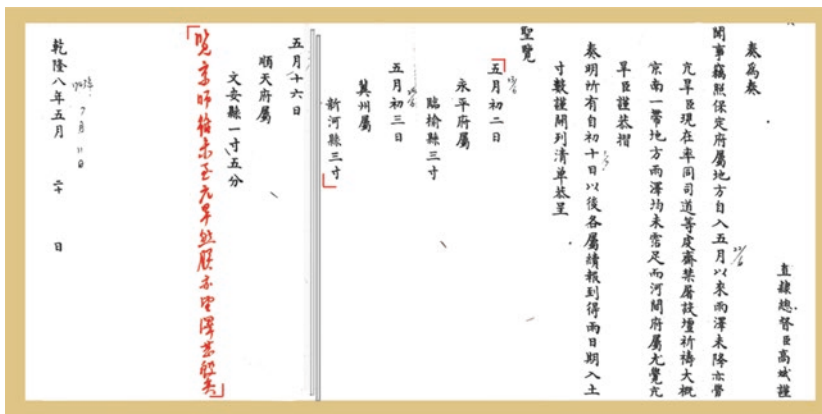 直隸總督臣高斌謹
奏為奏
聞事竊照保定府屬地方自入五月以來雨澤未降亦覺
亢旱臣現在率同司道等虔齋禁屠設壇祈禱大概
京南一帶地方雨澤均未霑足而河間府屬尤覺亢
旱臣謹恭摺
奏明所有自初十日以後各屬續報到得雨日期入土
寸數謹開列清单恭呈
聖覽
五月初二日
永平府屬
臨榆縣三寸
五月初三日
冀州屬
新河縣三寸
五月十六日
順天府屬
文安縣一寸五分
覽京師雖未至亢旱然朕亦望澤甚殷矣
7月11日
乾隆八年五月 二十 日